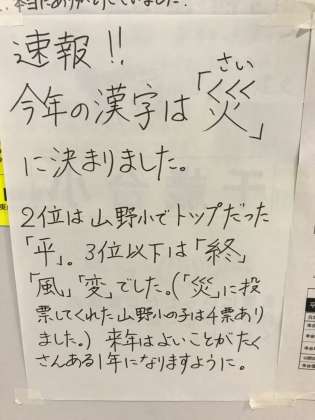 速報!!
今年の漢字は「災」
さい
に決まりました。
2位は山野小でトップだった
「平」。3位以下は「終」
「風」「変」でした。(「災」に投
票してくれた山野小の子は4票あり
ました。) 来年はよいことがたく
さんある1年になりますように。